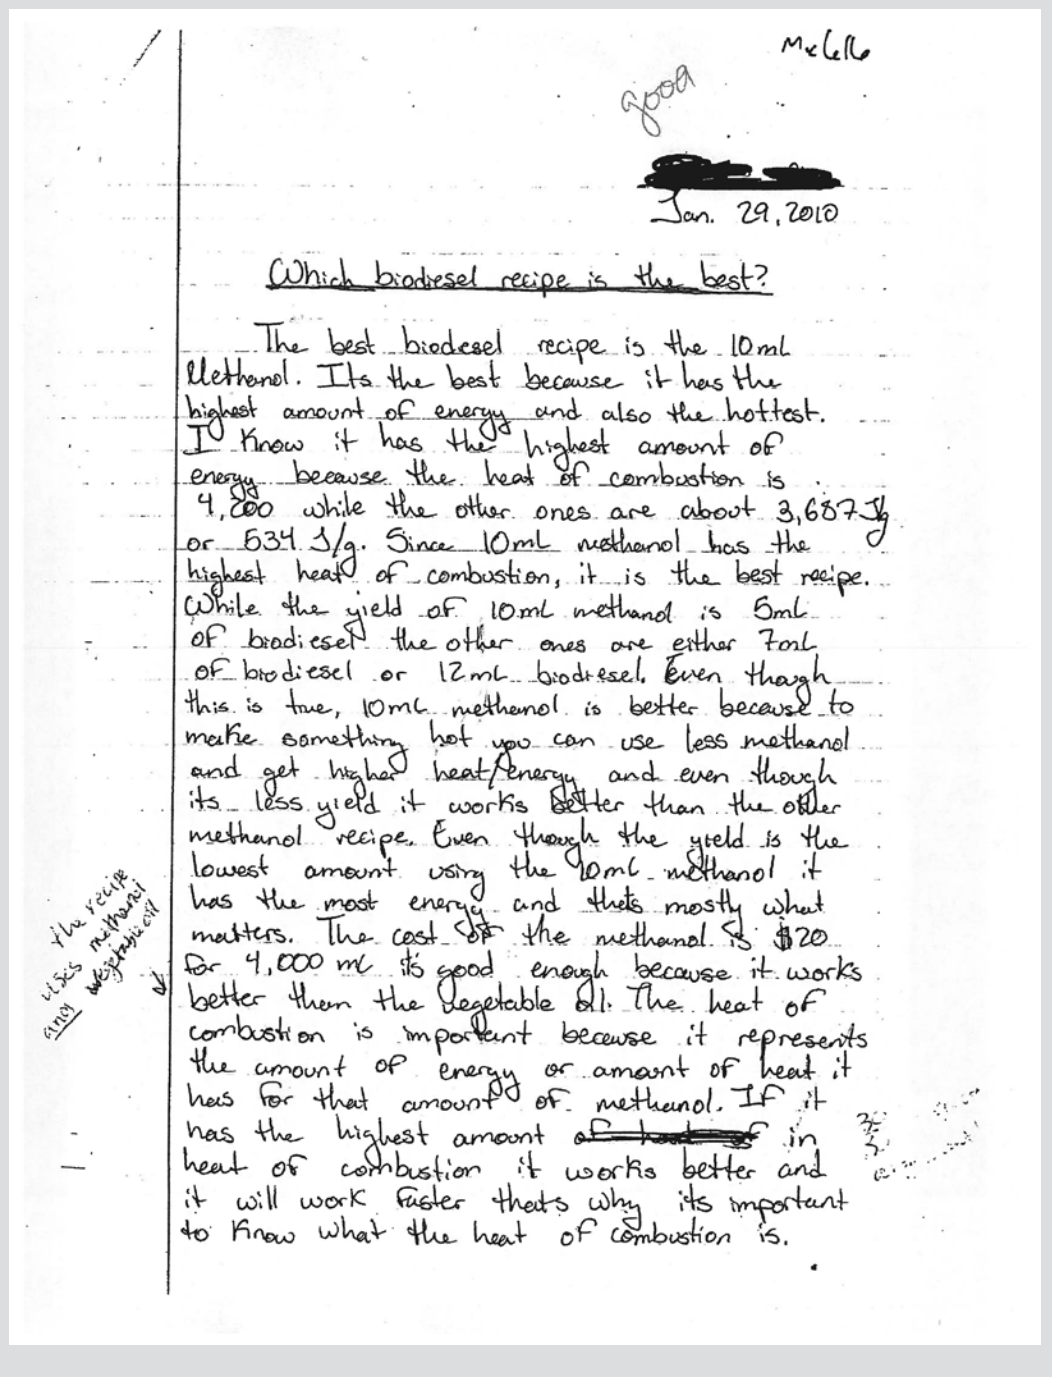 good
Jan. 29, 2010
Which biodiesel recipe is the best?
The best biodesel recipe is the 10mL
Methanol. Its the best because it has the
highest amount of energy and also the hottest.
I know it has the highest amount of
energy because the heat of combustion is
4,200 while the other ones are about 3,687 J/g
or 534 J/g. Since 10mL methanol has the
highest heat of combustion, it is the best recipe.
While the yield of 10mL methanol is 5mL
of biodiesel the other ones are either 7mL
of biodiesel or 12mL biodiesel. Even though
this is true, 10mL methanol is better because to
make something hot you can use less methanol
and get higher heat/energy and even though
its less yield it works better than the other
methanol recipe. Even though the yield is the
lowest amount using the 10mL methanol it
has the most energy and thats mostly what
matters. The cost of the methanol is $20
for 4,000 mL its good enough because it works
better then the vegetable oil. The heat of
combustion is important because it represents
the amount of energy or amount of heat it
has for that amount of methanol. If it
has the highest amount in
heat of combustion it works better and
it will work faster thats why its important
to know what the heat of combustion is.
the recipe
uses methanol
and vegetable oil